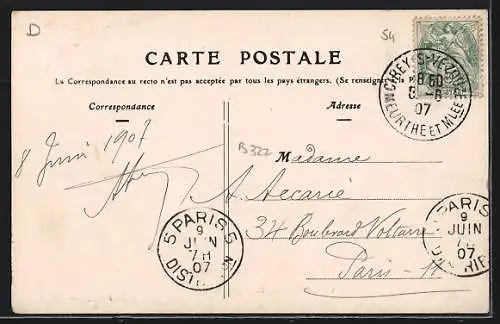 D
54
CARTE POSTALE
La Correspondance au recto n'est pas acceptée par tous les pays étrangers. (Se renseigner à la P
Correspondance
Adresse
CIREY-S-VEZOUZE
8 50
8 -6
07
MEURTHE ET M LLE
8 Juin 1907
B322
Madame
A. Aecarié
34 Boulevard Voltaire
Paris - 11
5 PARIS 5
9
JUIN
7 H
07
DISTR
PARIS
9
JUIN
7 H
07